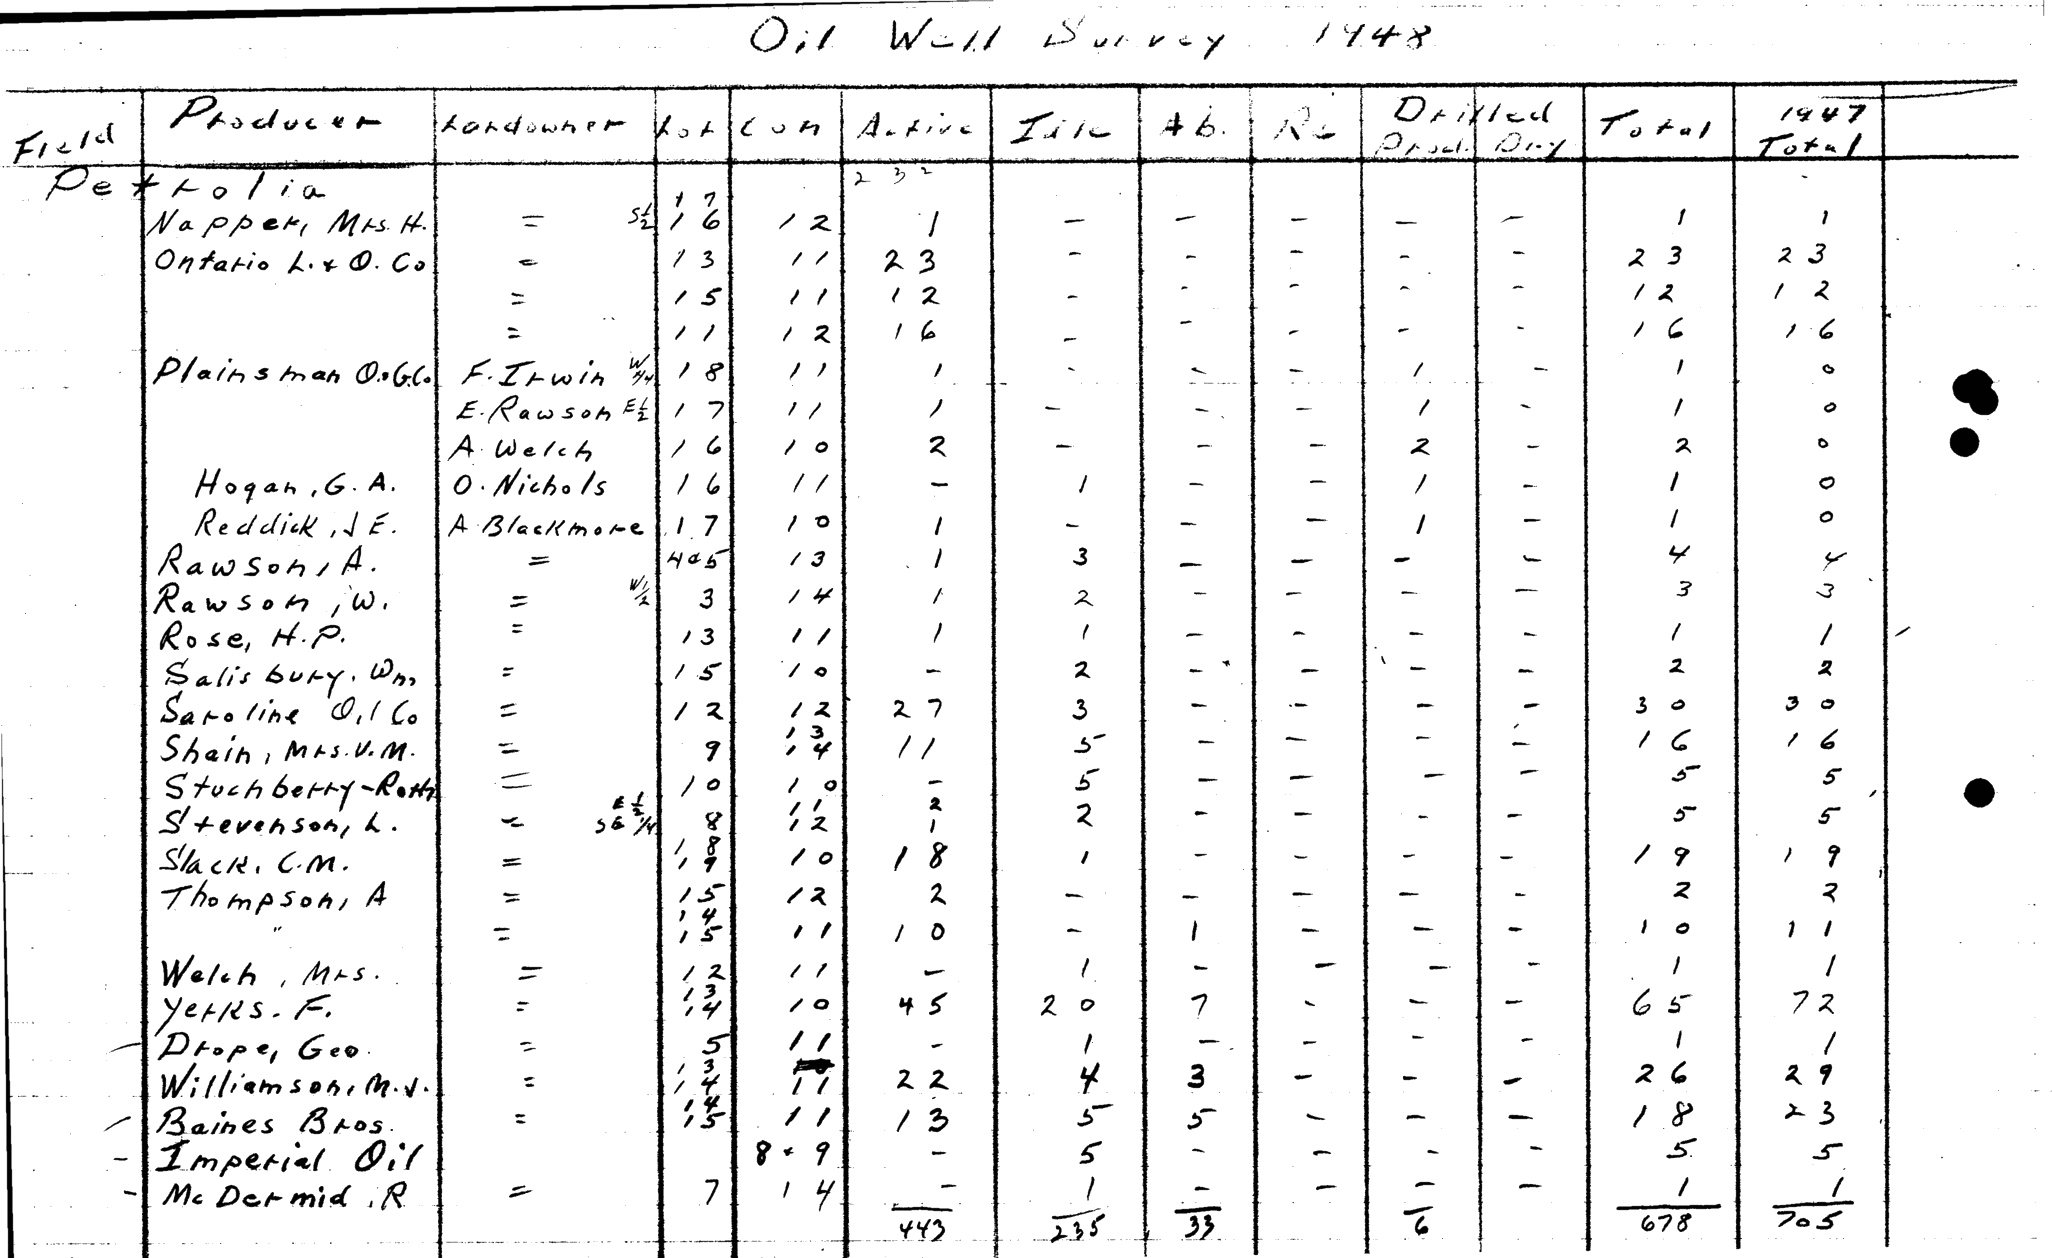 Oil Well Survey 1948
Field Producer Landowner Lot Con Active Idle Ab. Re Drilled Prod. Dry Total 1947 Total
Petrolia 232
Napper, Mrs. H. = S½ 17 16 12 1 - - - - - 1 1
Ontario L. & O. Co = 13 11 23 - - - - - 23 23
= 15 11 12 - - - - - 12 12
= 11 12 16 - - - - - 16 16
Plainsman O. & G. Co. F. Irwin W¼ 18 11 1 - - - 1 - 1 0
E. Rawson E½ 17 11 1 - - - 1 - 1 0
A. Welch 16 10 2 - - - 2 - 2 0
Hogan, G. A. O. Nichols 16 11 - 1 - - 1 - 1 0
Reddick, J E. A. Blackmore 17 10 1 - - - 1 - 1 0
Rawson, A. = 4&5 13 1 3 - - - - 4 4
Rawson, W. = W½ 3 14 1 2 - - - - 3 3
Rose, H. P. = 13 11 1 1 - - - - 1 1
Salisbury, Wm. = 15 10 - 2 - - - - 2 2
Saroline Oil Co = 12 12 27 3 - - - - 30 30
Shain, Mrs. V. M. = 9 13 14 11 5 - - - - 16 16
Stuchberry-Roth = 10 10 - 5 - - - - 5 5
Stevenson, L. = E½ SE¼ 8 11 12 2 1 2 - - - - 5 5
Slack, C. M. = 18 19 10 18 1 - - - - 19 19
Thompson, A = 15 12 2 - - - - - 2 2
" = 14 15 11 10 - 1 - - - 10 11
Welch, Mrs. = 12 11 - 1 - - - - 1 1
Yerks. F. = 13 14 10 45 20 7 - - - 65 72
Drope, Geo. = 5 11 - 1 - - - - 1 1
Williamson, M. J. = 13 14 11 22 4 3 - - - 26 29
Baines Bros. = 14 15 11 13 5 5 - - - 18 23
Imperial Oil 8 & 9 - 5 - - - - 5 5
McDermid, R = 7 14 - 1 - - - - 1 1
443 235 33 6 678 705